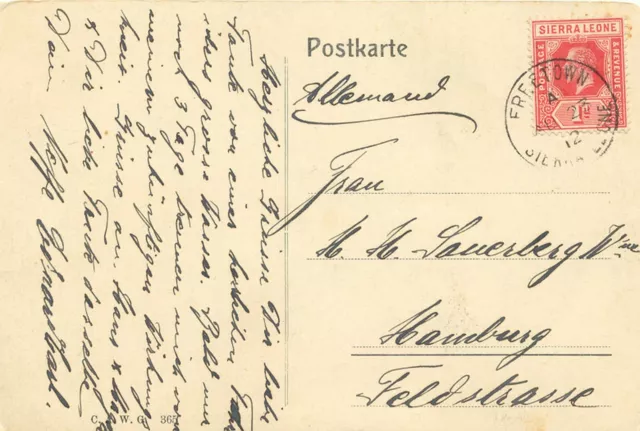 Postkarte
SIERRA LEONE
POSTAGE & REVENUE
1d
FREETOWN
A
12
SIERRA LEONE
Allemand
Frau
M. H. Sauerberg Wwe
Hamburg
Feldstrasse
Herzliche Grüsse Dir liebe
Tante von einer herrlichen
über grosse Wasser. Bald nur
noch 3 Tage trennen mich von
meinem zukünftigen Wirkungs
kreis. Grüsse an Hans &
& Dir liebe Tante
Dein Neffe
C. W. G. 365